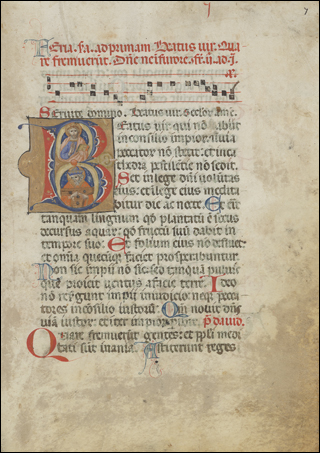 7
Feria. ad primam. Beatus vir. Qua
re fremuerūt. Dñe ne ī furore.
Servite domino. Beatus vir. evovae.
Beatus vir qui nō abiit
in consilio impior. ī via
peccator nō stetit: et in ca
thedra pestilētie nō sedit.
Set in lege dñi volūtas
eius: et ī lege eius medita
bitur die ac nocte. Et eīt
tanquam lingnum qd plantatū ē secus
decursus aquar: qd fructū suū dabit in
tempore suo. Et folium eius nō defluet:
et omīa quecūqꝫ faciet prosperabuntur.
Non sic impii nō sic: sed tanquā pulvis
quē proicit ventus a facie terre. Ideo
nō resurgunt impii in iudicio: neqꝫ pecca
tores in cōsilio iustorū. Qm̄ novit dñs
viā iustor: et iter impior peribit. ps david.
Quare fremuerūt gentes: et ppli medi
tati sūt inania. Astiterunt reges